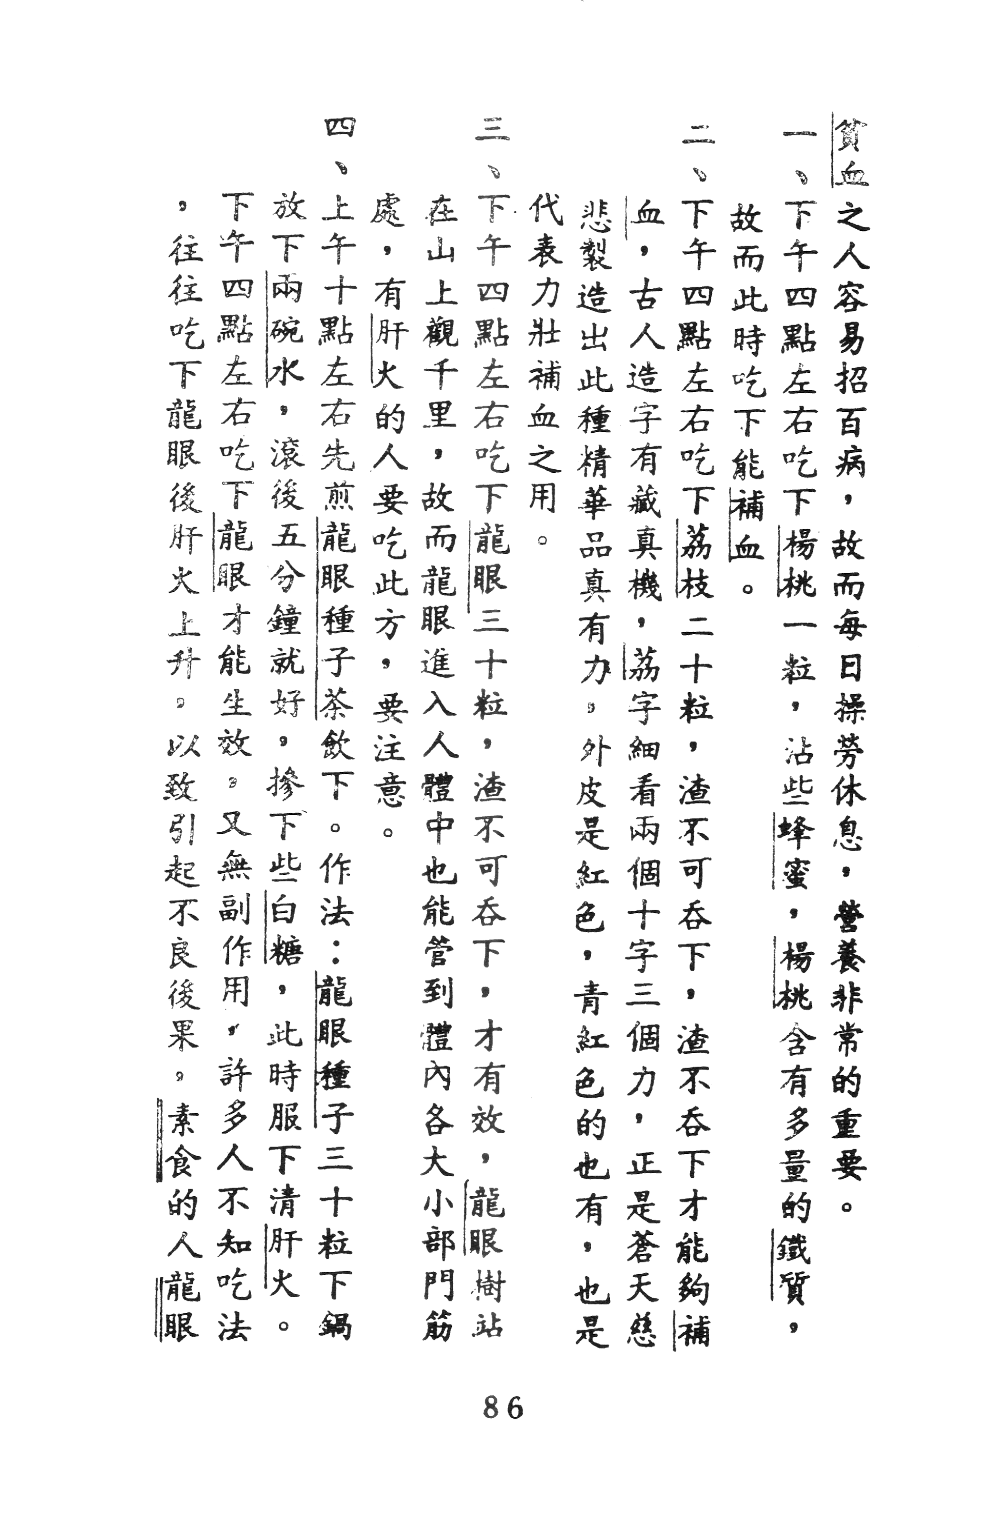 貧血之人容易招百病，故而每日操勞休息，營養非常的重要。
一、下午四點左右吃下楊桃一粒，沾些蜂蜜，楊桃含有多量的鐵質，
故而此時吃下能補血。
二、下午四點左右吃下荔枝二十粒，渣不可吞下，渣不吞下才能夠補
血，古人造字有藏真機，荔字細看兩個十字三個力，正是蒼天慈
悲製造出此種精華品真有力。外皮是紅色，青紅色的也有，也是
代表力壯補血之用。
三、下午四點左右吃下龍眼三十粒，渣不可吞下，才有效，龍眼樹站
在山上觀千里，故而龍眼進入人體中也能管到體內各大小部門筋
處，有肝火的人要吃此方，要注意。
四、上午十點左右先煎龍眼種子茶飲下。作法：龍眼種子三十粒下鍋
放下兩碗水，滾後五分鐘就好，摻下些白糖，此時服下清肝火。
下午四點左右吃下龍眼才能生效。又無副作用，許多人不知吃法
，往往吃下龍眼後肝火上升。以致引起不良後果。素食的人龍眼
86